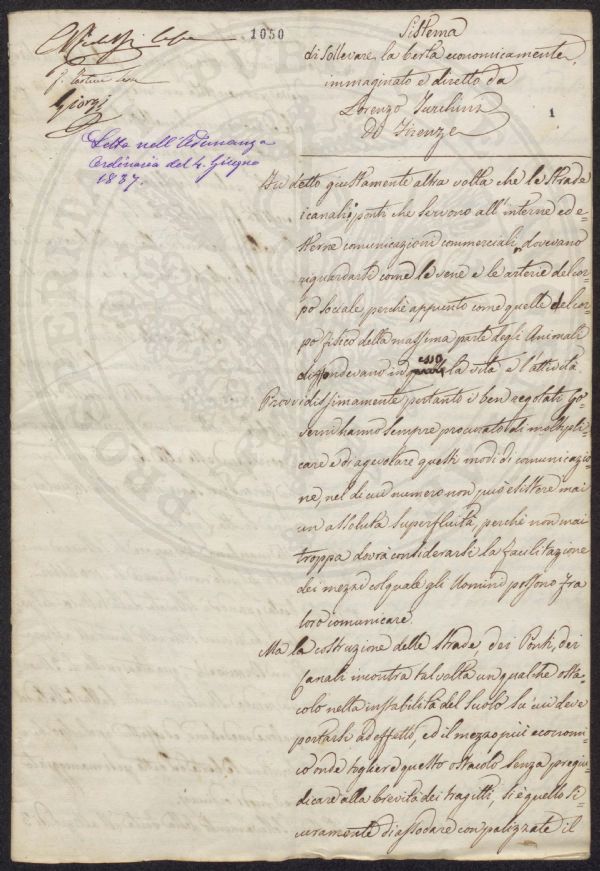 1050
J. Tartini
Giorgi
Letto nell'Adunanza
Ordinaria del 4. Giugno
1837.
Sistema
di Sollevare la berta economicamente,
immaginato e diretto da
Lorenzo Turchini
Di Firenze
1
Fu detto giustamente altra volta che le Strade
i canali i ponti che servono all'interne ed e-
sterne comunicazioni commerciali, dovevano
riguardarsi come le vene e le arterie del cor-
po sociale, perchè appunto come quelle del cor-
po fisico della massima parte degli Animali
diffondevano in esso la vita e l'attività
Provvidissimamente pertanto i ben regolati Go-
verni hanno sempre procurato di moltipli-
care e di agevolare questi modi di comunicazio-
ne, nel di cui numero non può esistere mai
un assoluta superfluità, perchè non mai
troppa dovrà considerarsi la facilitazione
dei mezzi col quale gli Uomini possono fra
loro comunicare.
Ma la costruzione delle Strade, dei Ponti, dei
Canali incontra tal volta un qualche osta-
colo nella instabilità del Suolo su cui deve
portarsi ad effetto, ed il mezzo più economi-
co onde togliere questo ostacolo senza pregiu-
dicare alla brevità dei tragitti, si è quello si-
curamente di assodare con palizzate il